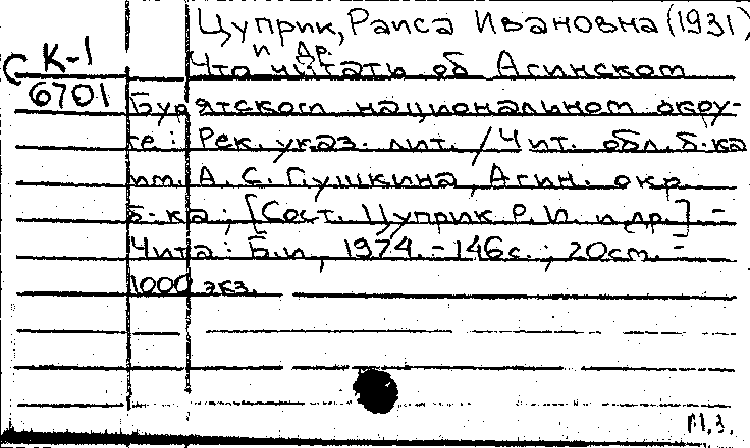 Цуприк, Раиса Ивановна (1931)
и др.
С К-1
6701
Что читать об Агинском
Бурятском национальном окру-
ге: Рек. указ. лит. / Чит. обл. б-ка
им. А. С. Пушкина, Агин. окр.
б-ка; [Сост. Цуприк Р. И. и др.] -
Чита: Б.и., 1974. - 146 с.; 20 см. -
1000 экз.
М.З.